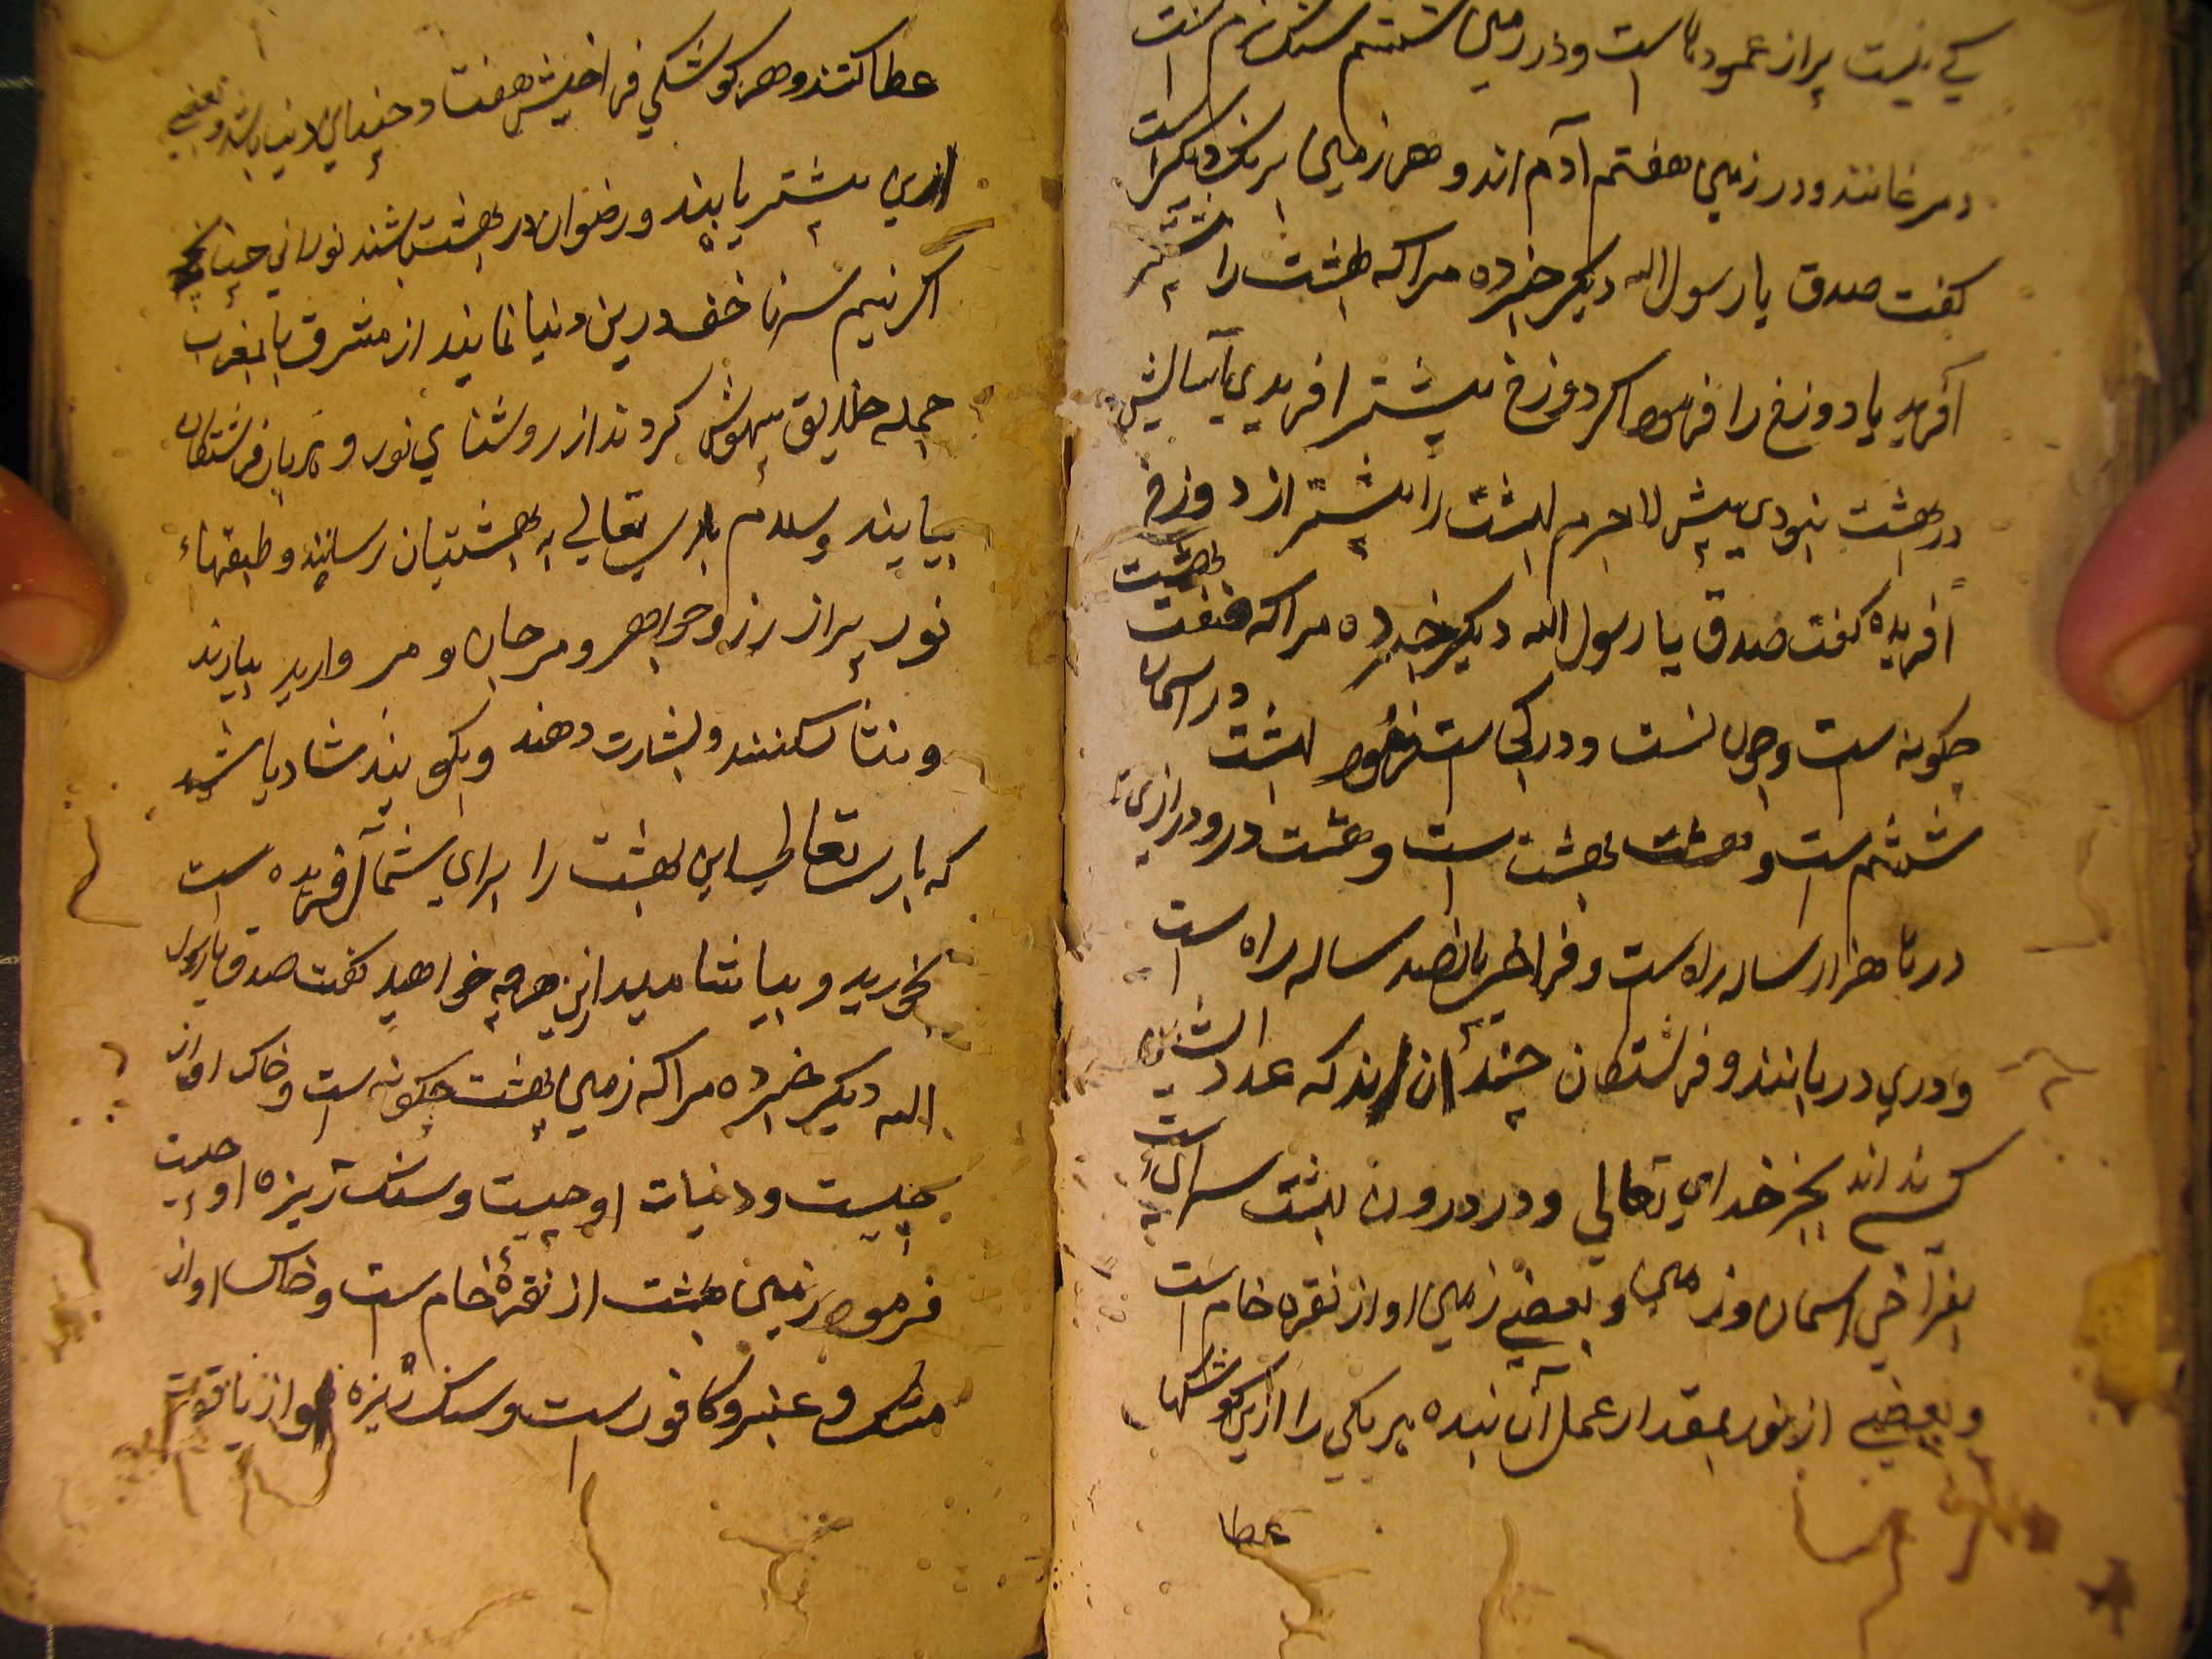 کی نیست پر از عمودها است و در زمین ششم سنک نرم است
در مرغانند و در زمین هفتم آدم اند و هر زمین برنک دیکر است
کفت صدق یا رسول الله دیکر خبر ده مرا که بهشت را پیشتر
آفرید یا دوزخ را فرمود اکر دوزخ پیشتر افریدی آسایش
در بهشت نبودی پیش لاجرم بهشت را پیشتر از دوزخ
آفریده کفت صدق یا رسول الله دیکر خبر ده مرا که صفت بهشت
چکونه است و چیست و در کجاست فرمود بهشت در اسمان
ششم است و هشت بهشت است و هشت در و درازی
در تا هزار ساله راه است و فراخی پانصد ساله راه است
و دری دربانند و فرشتکان چندان اند که عدد ایشان
کسی نداند بجز خدای تعالی و در درون بهشت سرای است
بفراخی اسمان و زمین و بعضی زمین او از نقره خام است
و بعضی از نور بمقدار عمل آن بنده هر یکی را ازین کوشکها
عطا
عطا کنند و هر کوشکی فراخیش هفتاد چندای دنیا باشد و بعضی
ازین بیشتر یابند و رضوان در بهشت باشند نورانی چنانکه
اکر نیم سر ناخن درین دنیا نمایند از مشرق تا بمغرب
جمله خلایق بیهوش کردند از روشنای نور و هر بار فرشتکان
بیایند و سلام باری تعالی به بهشتیان رسانند و طبقهاء
نور پر از زر و جواهر و مرجان و مروارید بیارند
و نثار کنند و بشارت دهند و بکویند شاد باشید
که باری تعالی این بهشت را برای شما آفریده است
بخورید و بیاشامید ازین هرچه خواهید کفت صدق یا رسول
الله دیکر خبر ده مرا که زمین بهشت چکونه است و خاک او از
چیست و نبات او چیست و سنک ریزه او چیست
فرمود زمین بهشت از نقره خام است و خاک او از
مشک و عنبر و کافور است و سنک ریزه او از یاقوت